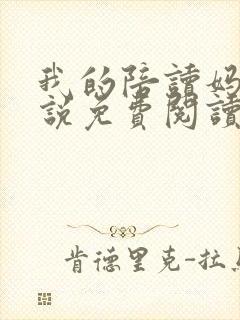 我的陪讀媽
説免費閱讀
肯德里克-拉